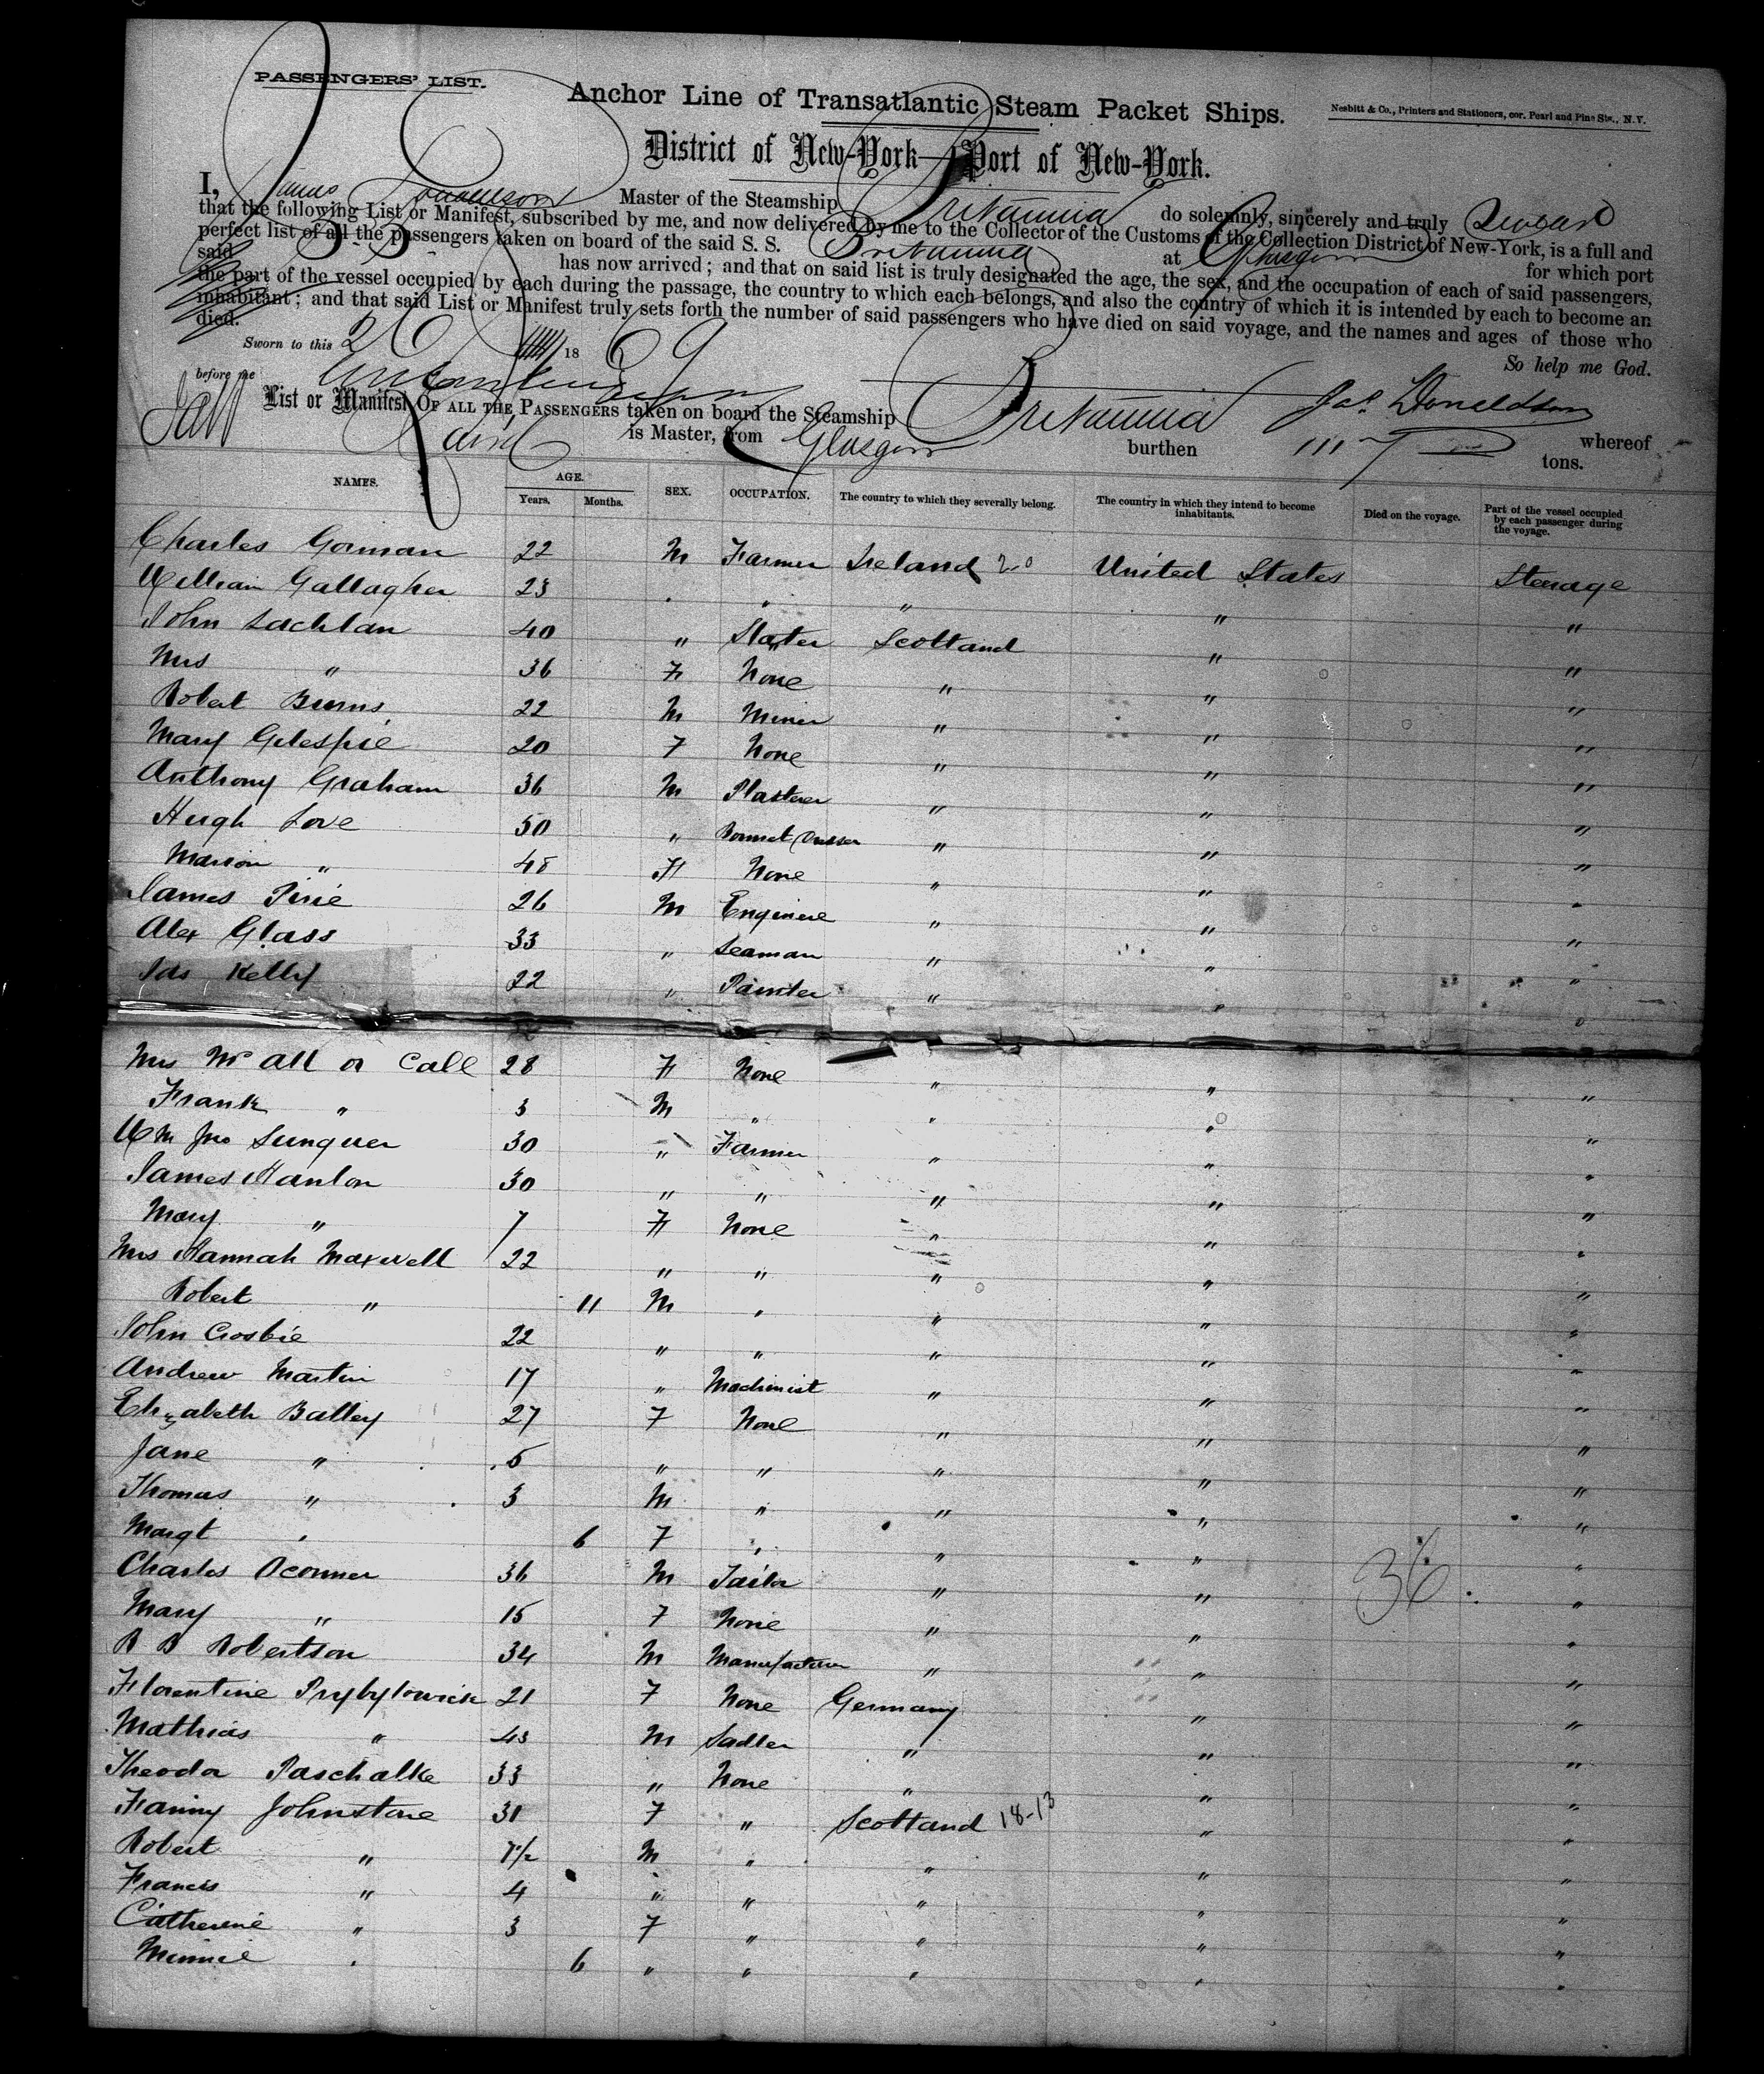 PASSENGERS' LIST.
Anchor Line of Transatlantic Steam Packet Ships.
Nesbitt & Co., Printers and Stationers, cor. Pearl and Pine Sts., N. Y.
District of New-York—Port of New-York.
I, James Donaldson Master of the Steamship Britannia do solemnly, sincerely and truly Swear
that the following List or Manifest, subscribed by me, and now delivered by me to the Collector of the Customs of the Collection District of New-York, is a full and
perfect list of all the passengers taken on board of the said S. S. Britannia at Glasgow for which port
said has now arrived; and that on said list is truly designated the age, the sex, and the occupation of each of said passengers,
the part of the vessel occupied by each during the passage, the country to which each belongs, and also the country of which it is intended by each to become an
inhabitant; and that said List or Manifest truly sets forth the number of said passengers who have died on said voyage, and the names and ages of those who
died.
So help me God.
Sworn to this 26 18 69
before me
Jas. Donaldson
List or Manifest OF ALL THE PASSENGERS taken on board the Steamship Britannia whereof
is Master, from Glasgow burthen 1117 tons.
NAMES. AGE. Years. Months. SEX. OCCUPATION. The country to which they severally belong. The country in which they intend to become inhabitants. Died on the voyage. Part of the vessel occupied by each passenger during the voyage.
Charles Gorman 22 M Farmer Ireland 20 United States Steerage
William Gallagher 23 " " " " "
John Lachlan 40 " Slater Scotland " "
Mrs " 36 F None " " "
Robert Burns 22 M Miner " " "
Mary Gilespie 20 F None " " "
Anthony Graham 36 M Plasterer " " "
Hugh Love 50 " Bonnet " " "
Marion " 48 F None " " "
James Pirie 26 M Engineer " " "
Alex Glass 33 " Seaman " " "
Jas Kelly 22 " Painter " " "
Mrs Mc All or Call 28 F None " " "
Frank " 3 M " " " "
Wm Jno 30 " Farmer " " "
James Hanlon 30 " " " " "
Mary " 7 F None " " "
Mrs Hannah Maxwell 22 " " " " "
Robert " 11 M " " " "
John Crosbie 22 " " " " "
Andrew Martin 17 " Machinist " " "
Elizabeth Batley 27 F None " " "
Jane " 5 " " " " "
Thomas " 3 M " " " "
Margt " 6 F " " " "
Charles Oconner 36 M Tailor " " 36 "
Mary " 15 F None " " "
R B Robertson 34 M Manufacturer " " "
Florentine Prybylowick 21 F None Germany " "
Mathias " 43 M Sadler " " "
Theodor Paschalke 33 " None " " "
Fanny Johnstone 31 F " Scotland 18-13 " "
Robert " 7½ M " " " "
Francis " 4 " " " " "
Catherine " 3 F " " " "
Minnie " 6 " " " " "